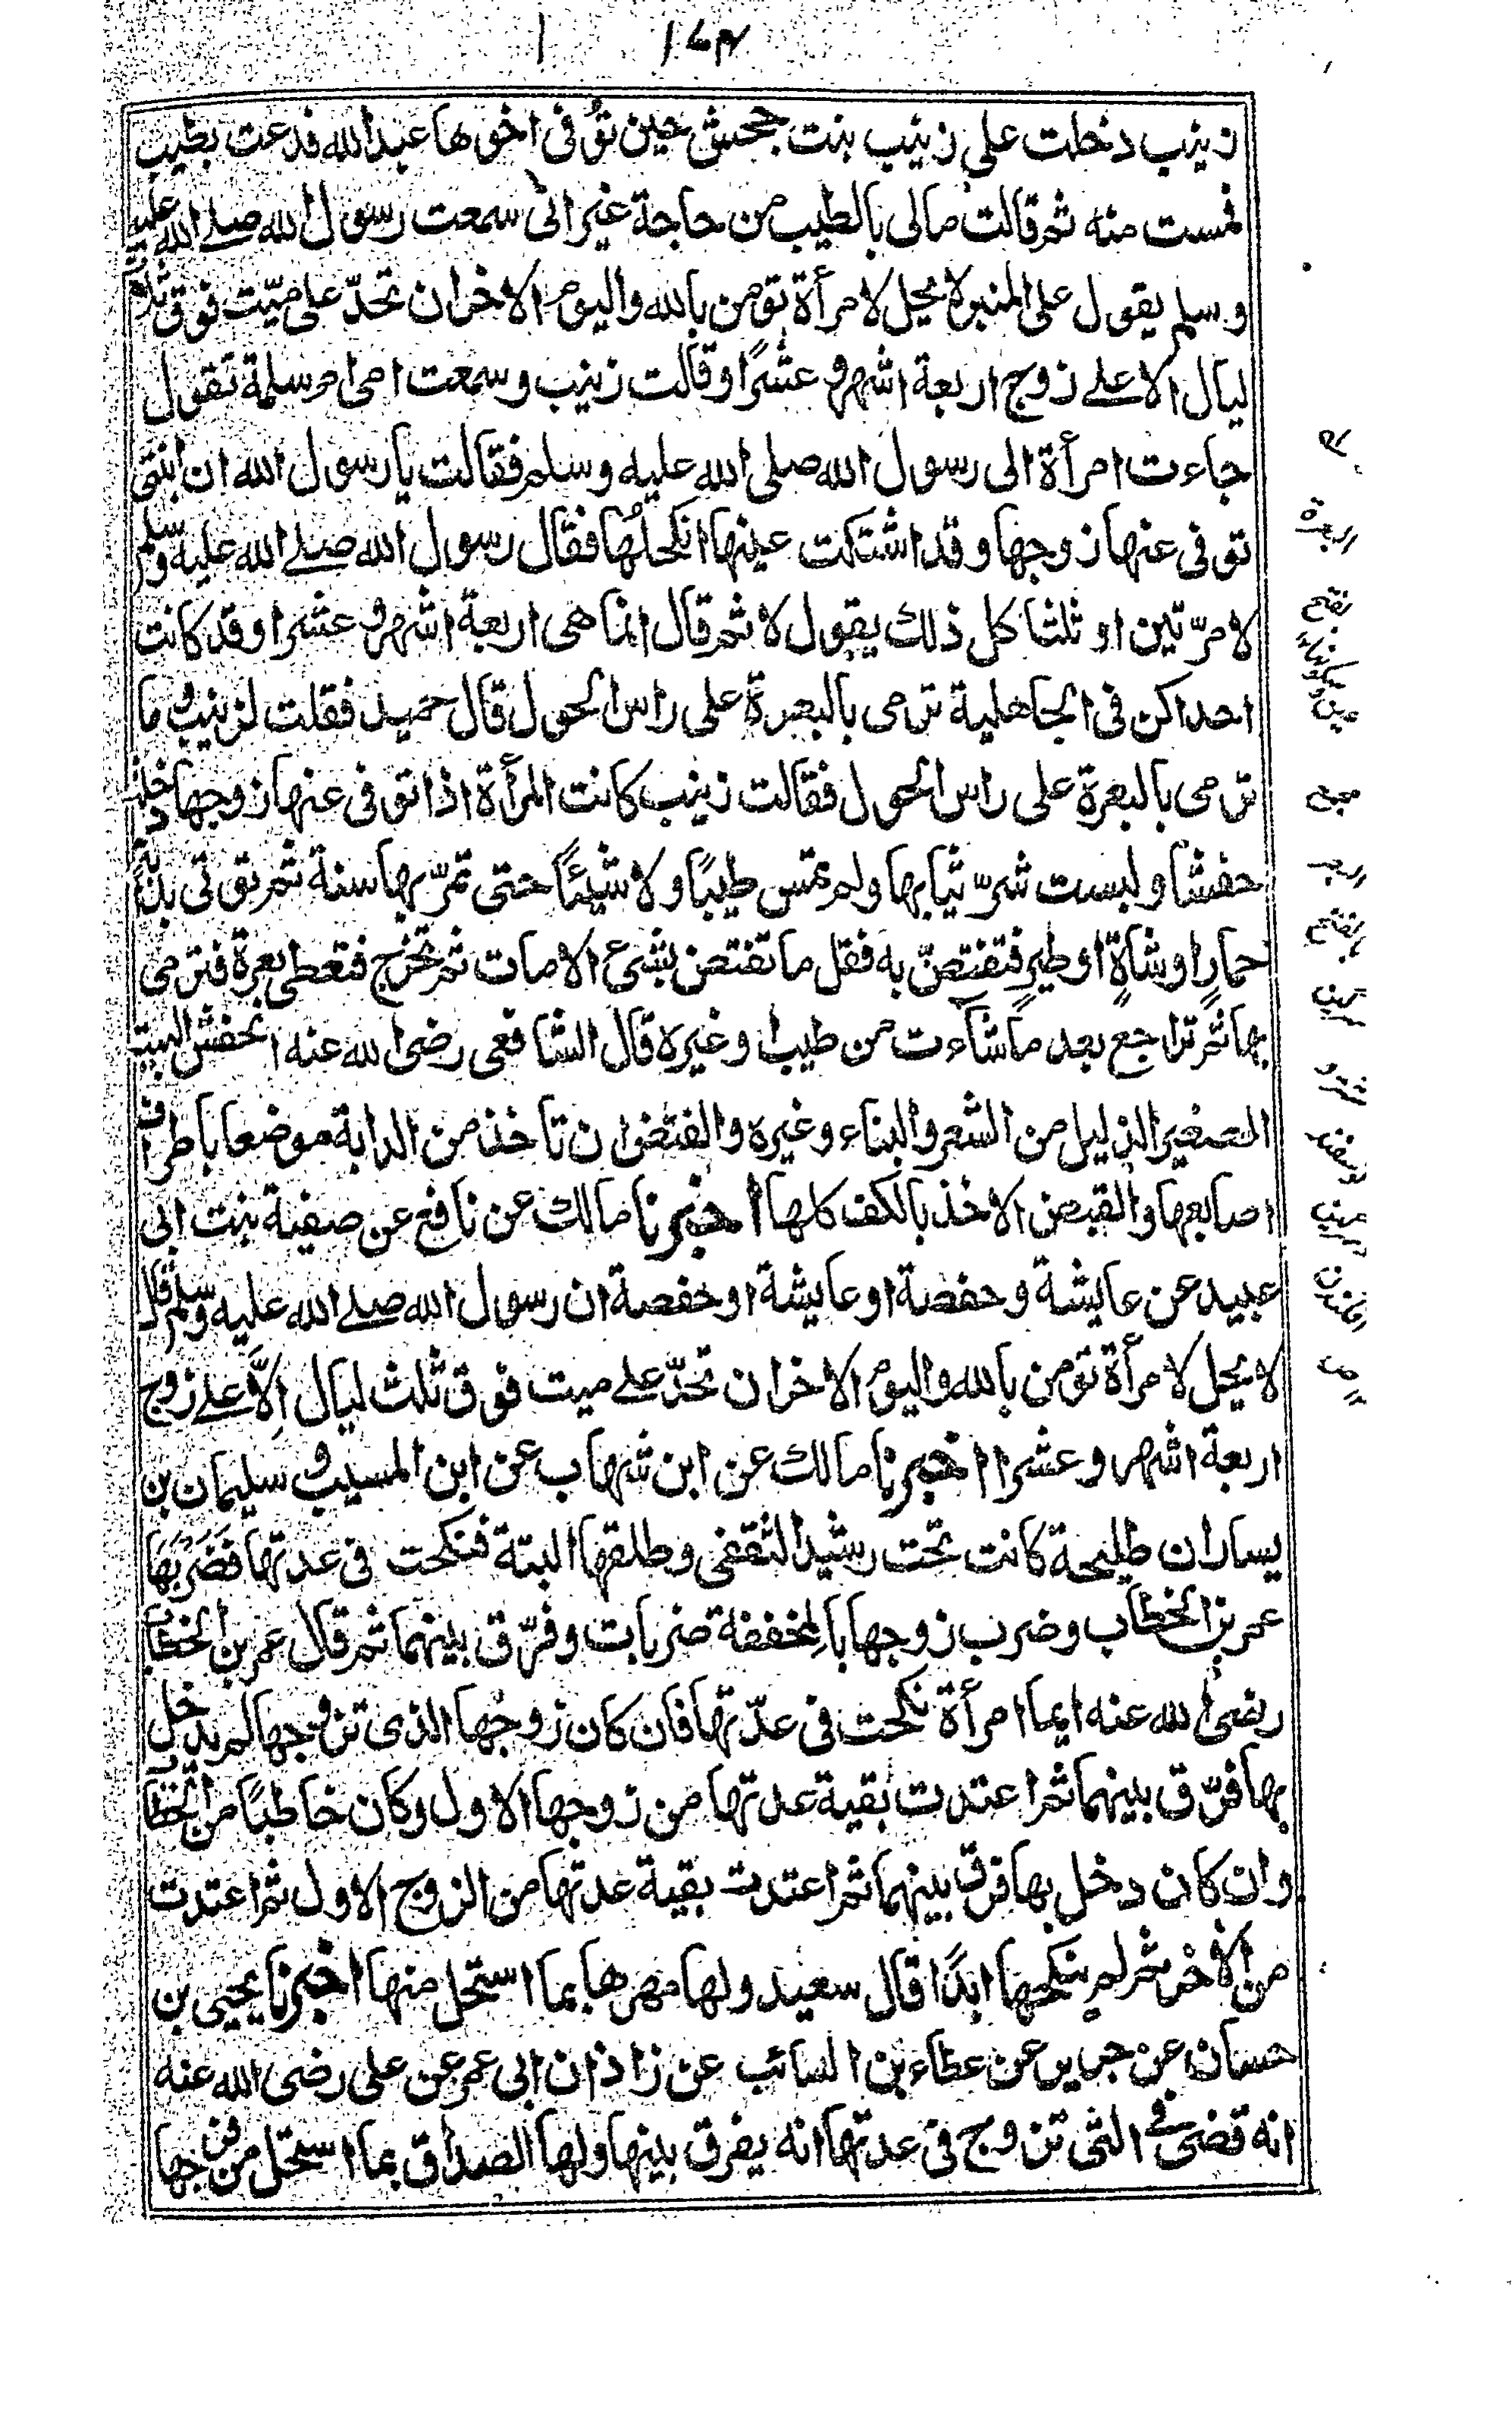 ١٧٣
زينب دخلت على زينب بنت جحش حين تُوُفى اخوها عبد الله فدعت بطيب
فمست منه ثم قالت مالى بالطيب من حاجة غير انى سمعت رسول الله صلے الله عليه
وسلم يقول على المنبر لا يحل لامرأة تؤمن بالله واليوم الاخر ان تحدّ على ميّت فوق ثلاث
ليال الا علے زوج اربعة اشهر وعشرًا وقالت زينب وسمعت امى ام سلمة تقول
جاءت امرأة الى رسول الله صلى الله عليه وسلم فقالت يا رسول الله ان ابنتى
توفى عنها زوجها وقد اشتكت عينها انكحلُها فقال رسول الله صلے الله عليه وسلم
لا مرّتين او ثلثا كل ذلك يقول لا ثم قال انما هى اربعة اشهر وعشرا وقد كانت
احداكن فى الجاهلية ترمى بالبعرة على راس الحول قال حميد فقلت لزينب وما
ترمى بالبعرة على راس الحول فقالت زينب كانت المرأة اذا توفى عنها زوجها دخلت
حفشا ولبست شرّ ثيابها ولم تمس طيبًا ولا شيئًا حتى تمرّ بها سنة ثم تؤتى بدابةٍ
حمارٍ او شاةٍ او طيرٍ فتفتضّ به فقل ما تفتض بشىء الا مات ثم تخرج فتعطى بعرة فترمى
بها ثم تراجع بعد ما شاءت من طيب او غيره قال الشافعى رضى الله عنه الحفش البيت
الصغير الذليل من الشعر والبناء وغيره والفتض ان تاخذ من الدابة موضعا باطراف
اصابعها والقبض الاخذ بالكف كلها اخبرنا مالك عن نافع عن صفية بنت ابى
عبيد عن عايشة وحفصة او عايشة او حفصة ان رسول الله صلے الله عليه وسلم قال
لا يحل لامرأة تؤمن بالله واليوم الاخر ان تحدّ علے ميت فوق ثلث ليال اِلاَّ علے زوج
اربعة اشهر وعشرا اخبرنا مالك عن ابن شهاب عن ابن المسيب وسليمان بن
يسار ان طليحة كانت تحت رشيد الثقفى وطلقها البتة فنكحت فى عدتها فَضَرَبَهَا
عمر بن الخطاب وضرب زوجها بالمخففة ضربات وفرّق بينهما ثم قال عمر بن الخطاب
رضى الله عنه ايما امرأة نكحت فى عدّتها فان كان زوجُها الذى تزوجها لم يدخل
بها فرّق بينهما ثم اعتدت بقية عدتها من زوجها الاول وكان خاطبًا من الخطاب
وان كان دخل بها فرق بينهما ثم اعتدت بقية عدتها من الزوج الاول ثم اعتدت
من الاخر ثم لم ينكحها ابدًا قال سعيد ولها مهرها بما استحل منها اخبرنا يحيى بن
حسان عن جرير عن عطاء بن السائب عن زاذان ابى عمر عن على رضى الله عنه
انه قضى فے التى تزوج فى عدتها انه يفرق بينها ولها الصداق بما استحل من فرجها
البعرة
بفتح